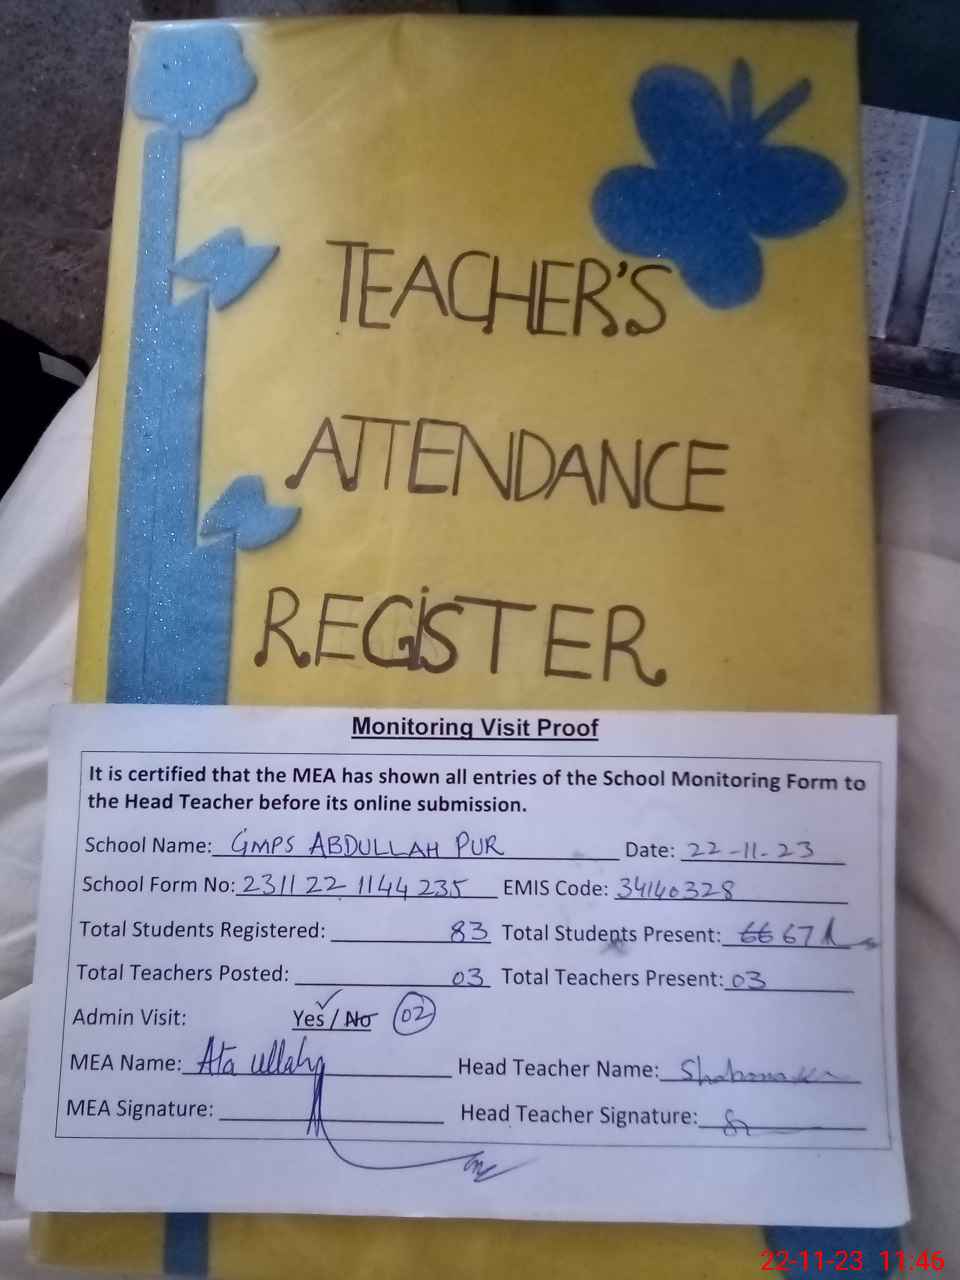 TEACHER'S
ATTENDANCE
REGiSTER
Monitoring Visit Proof
It is certified that the MEA has shown all entries of the School Monitoring Form to
the Head Teacher before its online submission.
School Name: GMPS ABDULLAH PUR Date: 22-11-23
School Form No: 2311 22 1144 235 EMIS Code: 34140328
Total Students Registered: 83 Total Students Present: 66 67
Total Teachers Posted: 03 Total Teachers Present: 03
Admin Visit: Yes / No 02
MEA Name: Ata ullah Head Teacher Name:
MEA Signature: Head Teacher Signature:
22-11-23 11:46